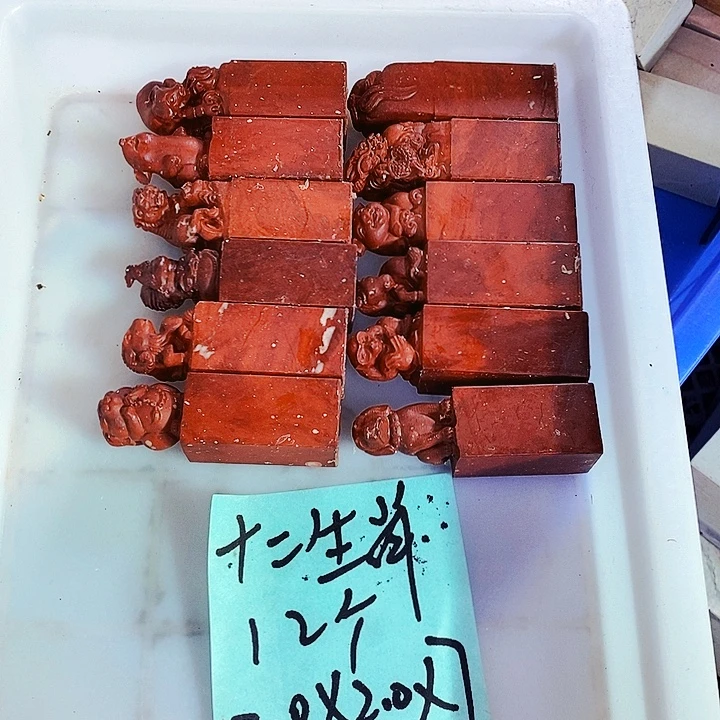 十二生肖
12个
2.0X2.0X7